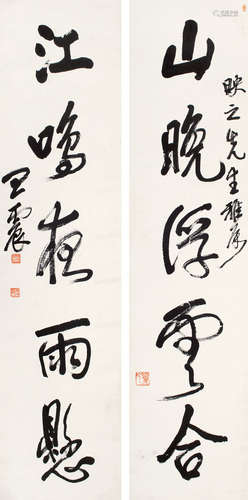 山晚浮雲合
映之先生雅屬
江鳴夜雨懸
王震